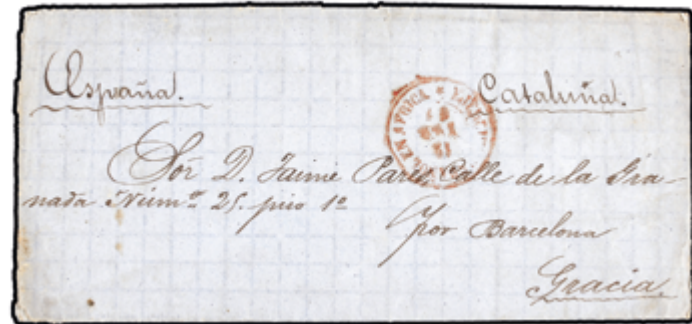 España. Cataluña.
Sor D. Jaime Parés, Calle de la Gra-
nada Núm.º 25. piso 1º
por Barcelona
Gracia
AFRICA